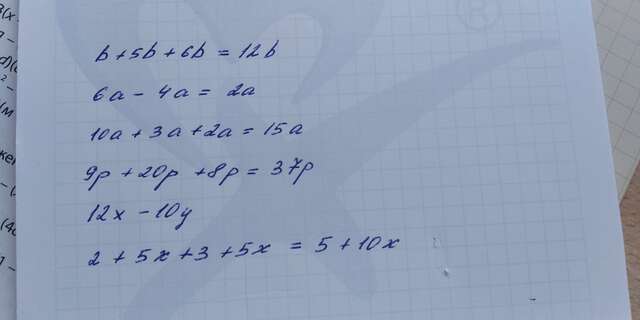 b + 5b + 6b = 12b
6a - 4a = 2a
10a + 3a + 2a = 15a
9p + 20p + 8p = 37p
12x - 10y
2 + 5x + 3 + 5x = 5 + 10x
®